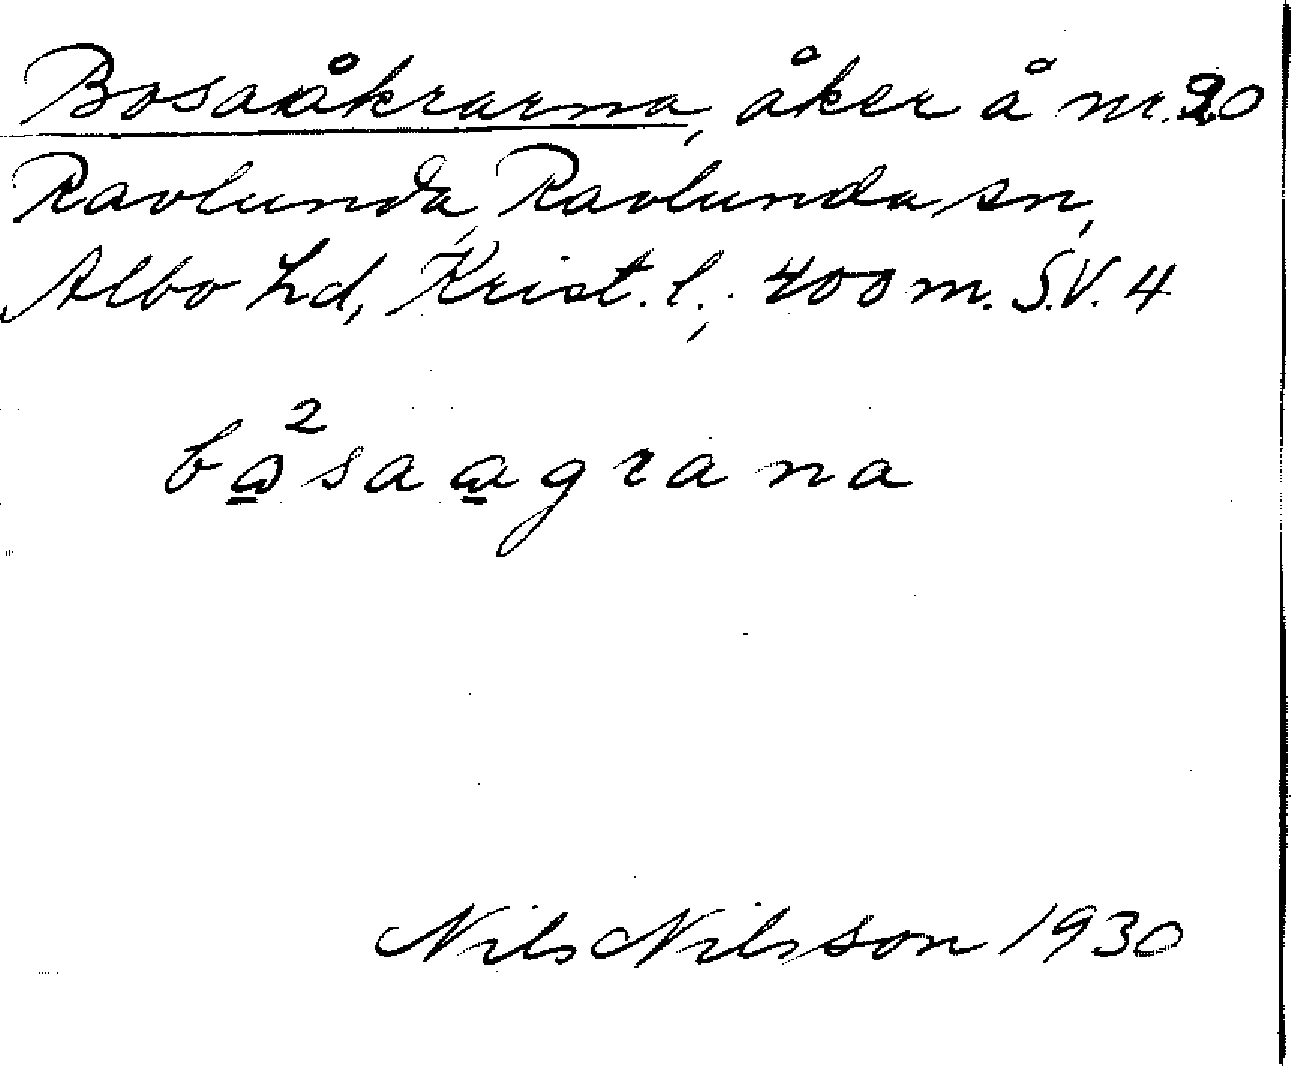 Bosaåkrarna, åker å nr. 20
Ravlunda, Ravlunda sn,
Albo hd, Krist. l.; 400 m. S.V. 4
bω̲²saa̲grana
Nils Nilsson 1930